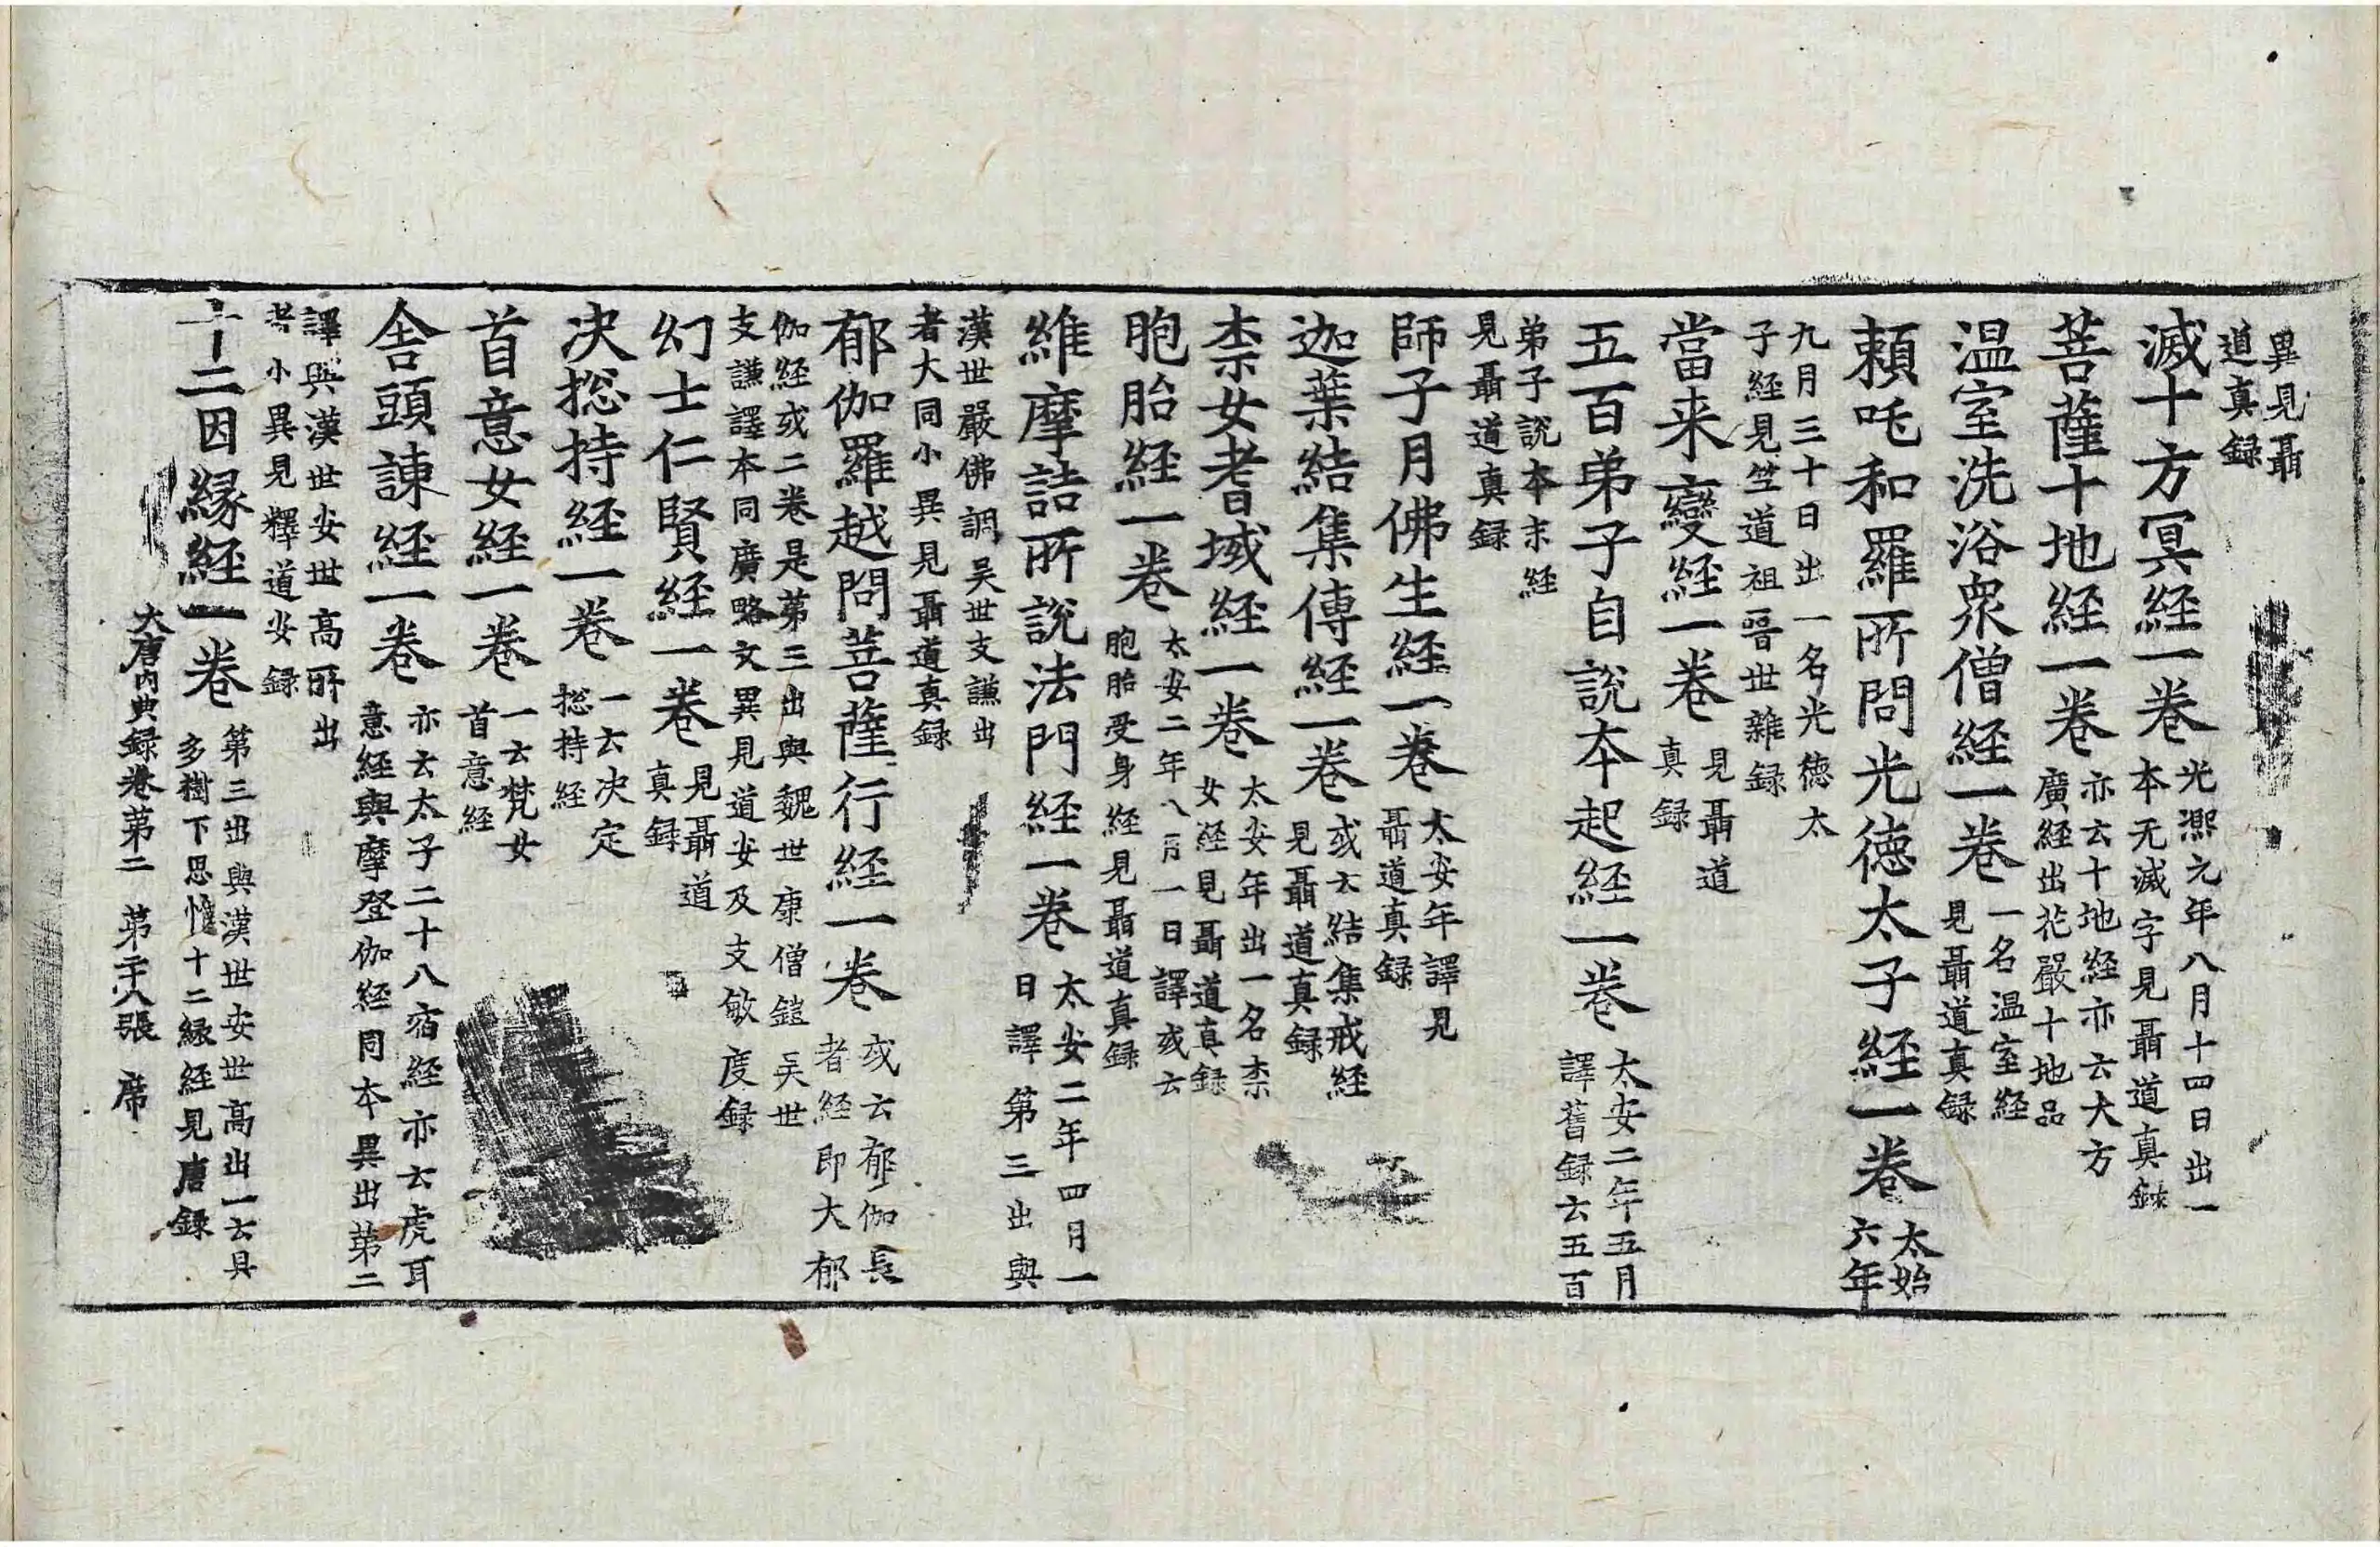 異見聶
道真録
滅十方冥経一卷 光熈元年八月十四日出一
本无滅字見聶道真録
菩薩十地経一卷 亦云十地経亦云大方
廣経出花嚴十地品
温室洗浴衆僧経一卷 一名温室経
見聶道真録
頼吒和羅所問光徳太子経一卷 太始
六年
九月三十日出一名光徳太
子経見竺道祖晉世雜録
當来變経一卷 見聶道
真録
五百弟子自説本起経一卷 太安二年五月
譯舊録云五百
弟子說本末経
見聶道真録
師子月佛生経一卷 太安年譯見
聶道真録
迦葉結集傳経一卷 或云結集戒経
見聶道真録
柰女耆域経一卷 太安年出一名柰
女経見聶道真録
胞胎経一卷 太安二年八月一日譯或云
胞胎受身経見聶道真録
維摩詰所說法門経一卷 太安二年四月一
日譯第三出與
漢世嚴佛調吴世支謙出
者大同小異見聶道真録
郁伽羅越問菩薩行経一卷 或云郁伽長
者経即大郁
伽経或二卷是第三出與魏世康僧鎧吴世
支謙譯本同廣略文異見道安及支敏度録
幻士仁賢経一卷 見聶道
真録
决揔持経一卷 一云决定
揔持経
首意女経一卷 一云梵女
首意経
舍頭諫経一卷 亦云太子二十八宿経亦云虎耳
意経與摩登伽経同本異出第二
譯與漢世安世高所出
者小異見釋道安録
十二因縁経一卷 第三出與漢世安世高出一云具
多樹下思惟十二縁経見唐録
大唐内典録卷第二 第二十八張 席